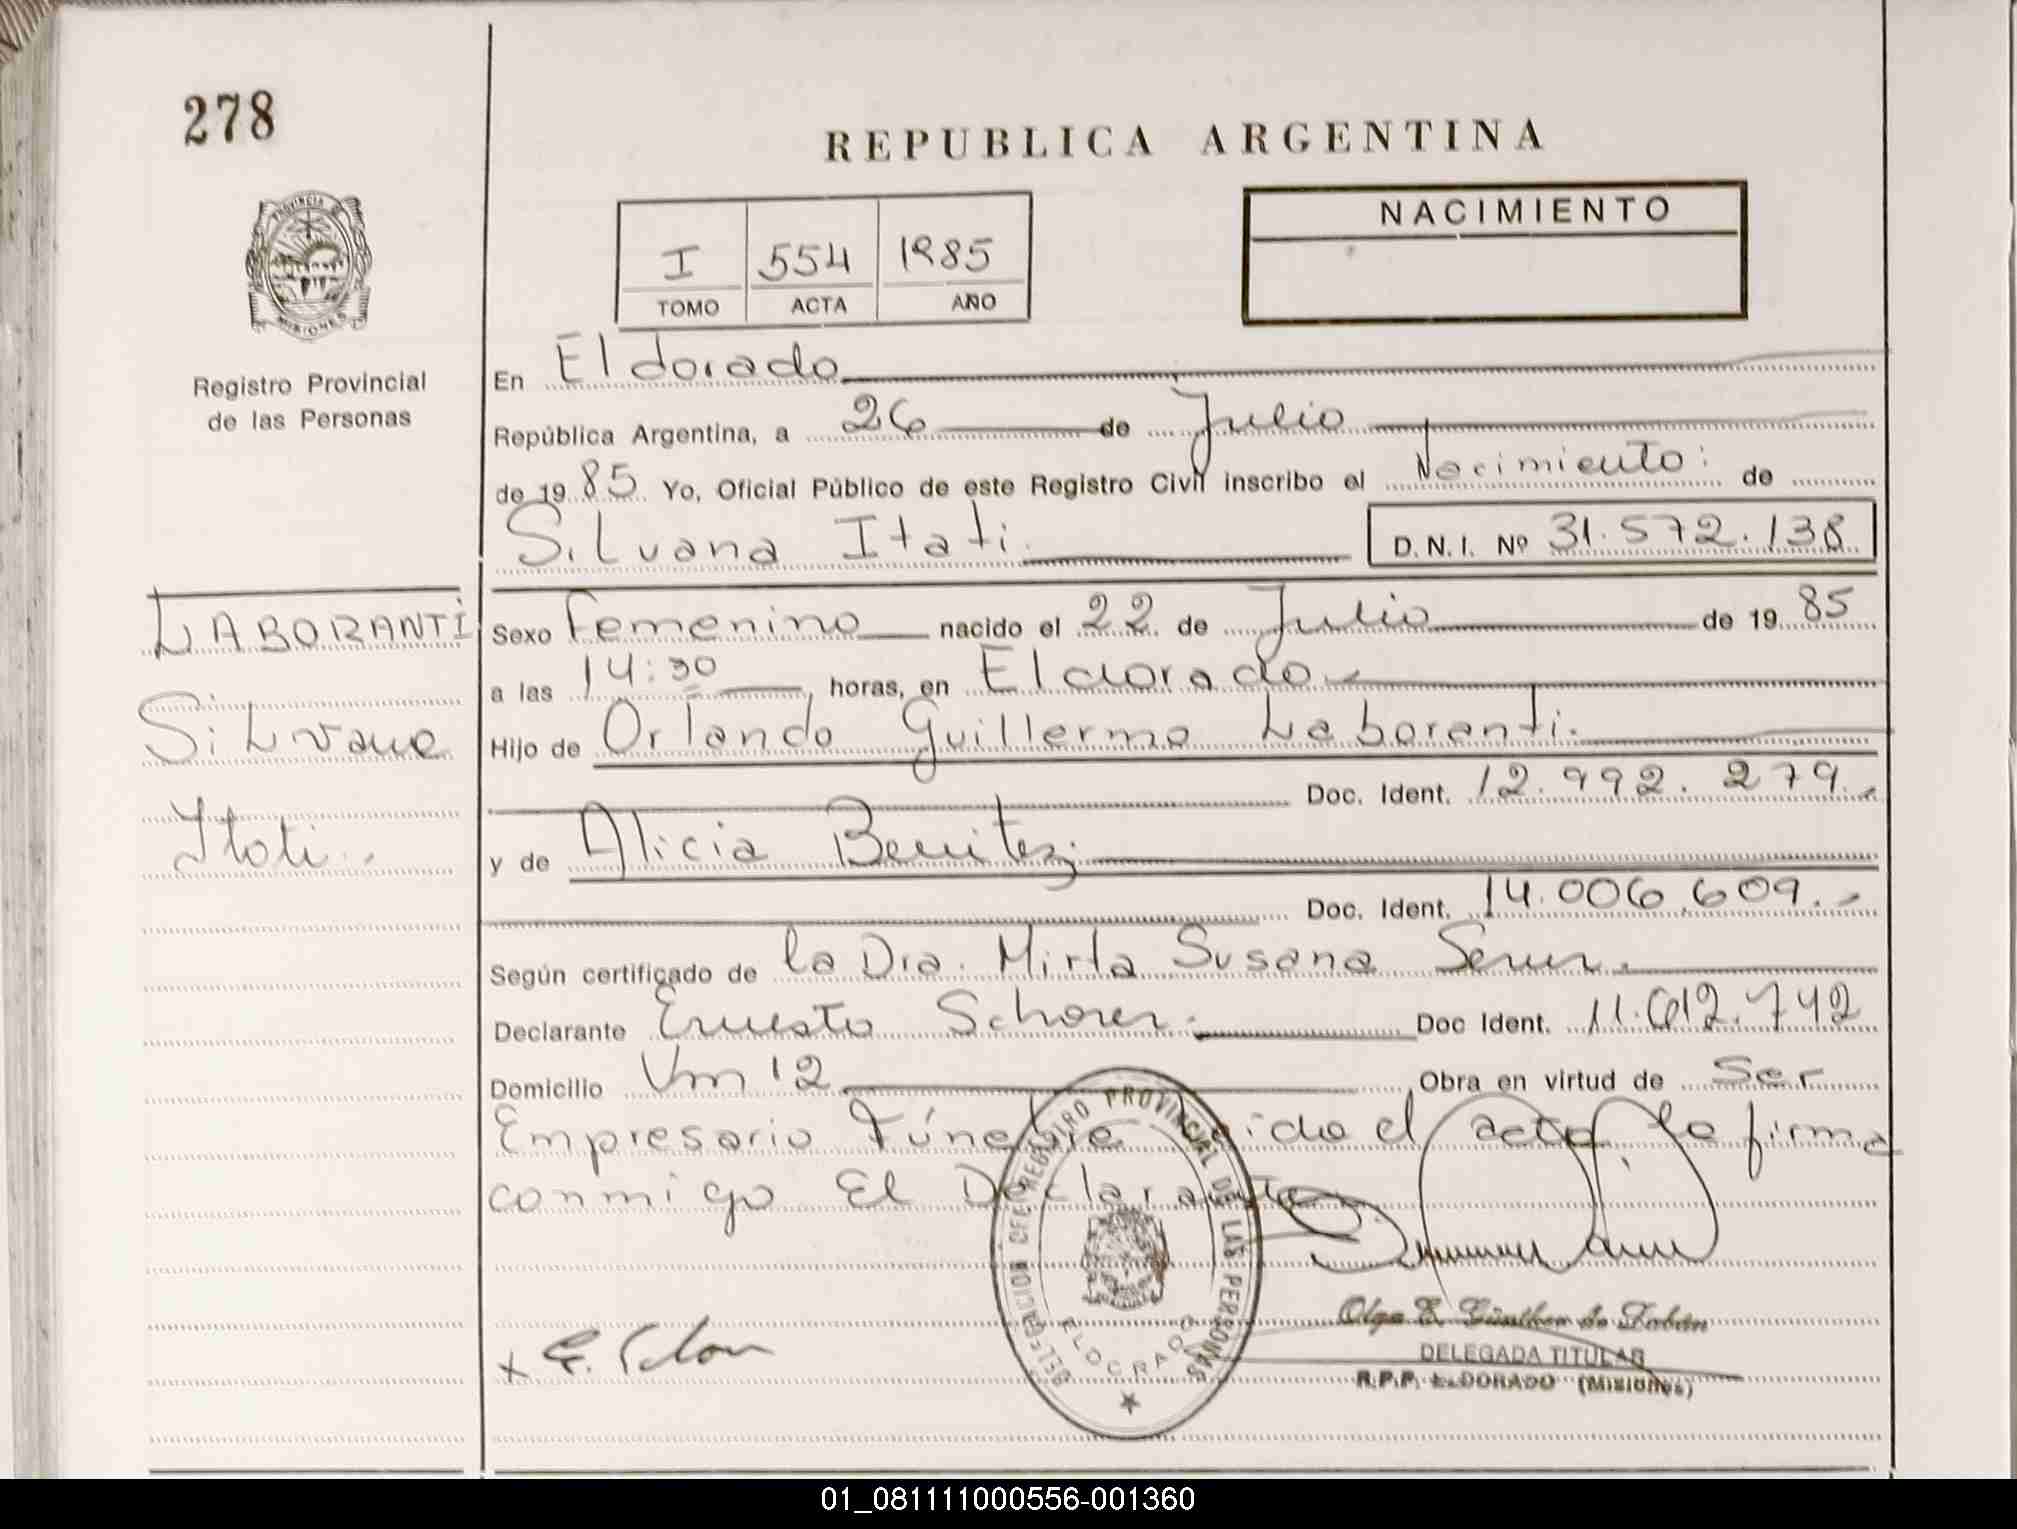 278
REPUBLICA ARGENTINA
PROVINCIA DE
MISIONES
NACIMIENTO
I 554 1985
TOMO ACTA AÑO
Registro Provincial
de las Personas
En Eldorado
República Argentina, a 26 de Julio
de 1985 Yo, Oficial Público de este Registro Civil inscribo el Nacimiento: de
Silvana Itati. D.N.I. Nº 31.572.138
LABORANTI
Silvana
Itati.-
Sexo Femenino nacido el 22 de Julio de 1985
a las 14:30, horas, en Eldorado.-
Hijo de Orlando Guillermo Laboranti.
Doc. Ident. 12.992.279.-
y de Alicia Benitez.
Doc. Ident. 14.006.609.-
Según certificado de la Dra. Mirta Susana
Declarante Ernesto Schorer. Doc Ident. 11.612.742
Domicilio Km 12 Obra en virtud de Ser
Empresario Fúnebre Leida el acta la firma
conmigo El Declarante
DELEGACION REGISTRO PROVINCIAL DE LAS PERSONAS
ELDORADO
Olga E. Günther de
DELEGADA TITULAR
R.P.P. ELDORADO (Misiones)
01_081111000556-001360